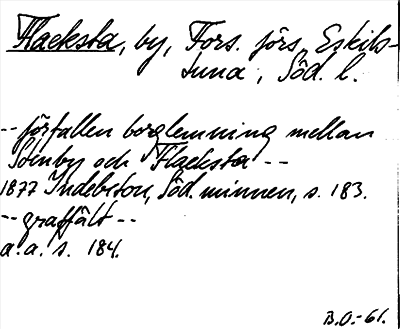 Flacksta, by, Fors. förs, Eskils-
tuna, Söd. l.
-- förfallen borglemning mellan
Stenby och Flacksta --
1877 Indebetou, Söd. minnen, s. 183.
-- graffält --
a.a. s. 184.
B.O.-61.